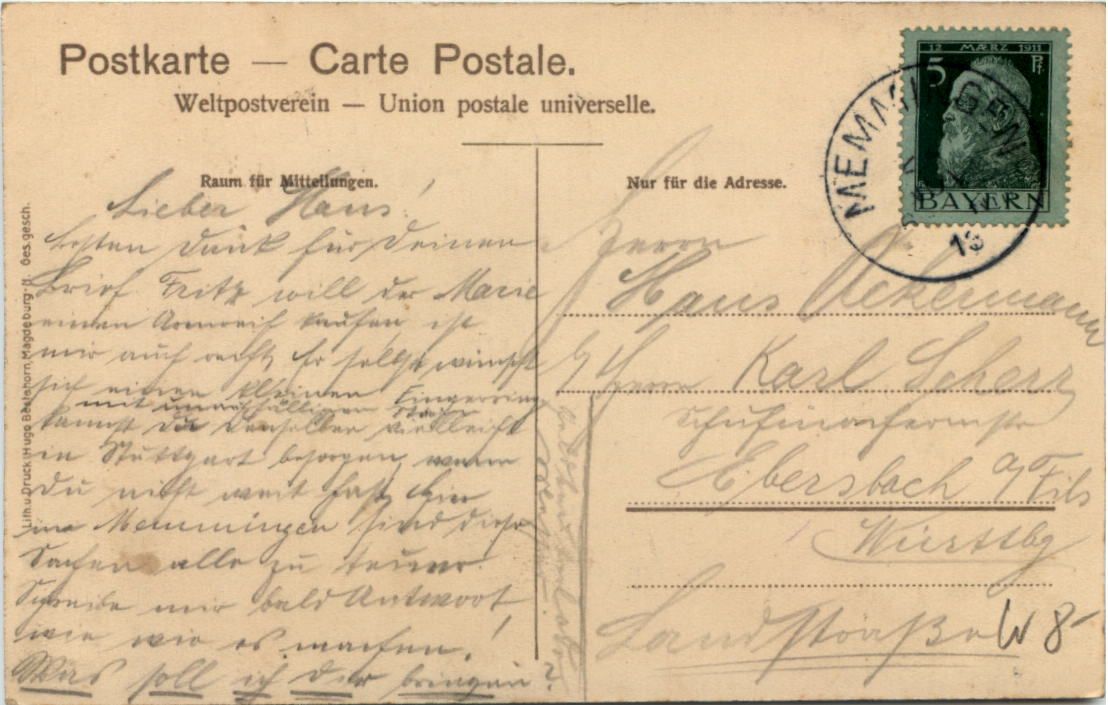 Postkarte — Carte Postale.
Weltpostverein — Union postale universelle.
12 MÆRZ 1911
5 Pf.
BAYERN
MEMMINGEN
13
Raum für Mitteilungen.
Lieber Hans!
besten Dank für Deinen
Brief. Fritz will der Marie
einen Armreif kaufen ist
mir auch recht, er selbst wünscht
sich einen kleinen Fingerring
mit
kannst Du denselben vielleicht
in Stuttgart besorgen, wenn
Du nicht weit hast, hier
in Memmingen sind diese
Sachen alle zu teuer.
Schreibe mir bald Antwort
wie wir es machen!
Was soll ich Dir bringen?
Nur für die Adresse.
Herrn
Hans Ackermann
Herrn Karl Scherr
Ebersbach a/Fils
Württbg
Landstraße
Lith. u. Druck: Hugo Bestehorn, Magdeburg-N. Ges. gesch.